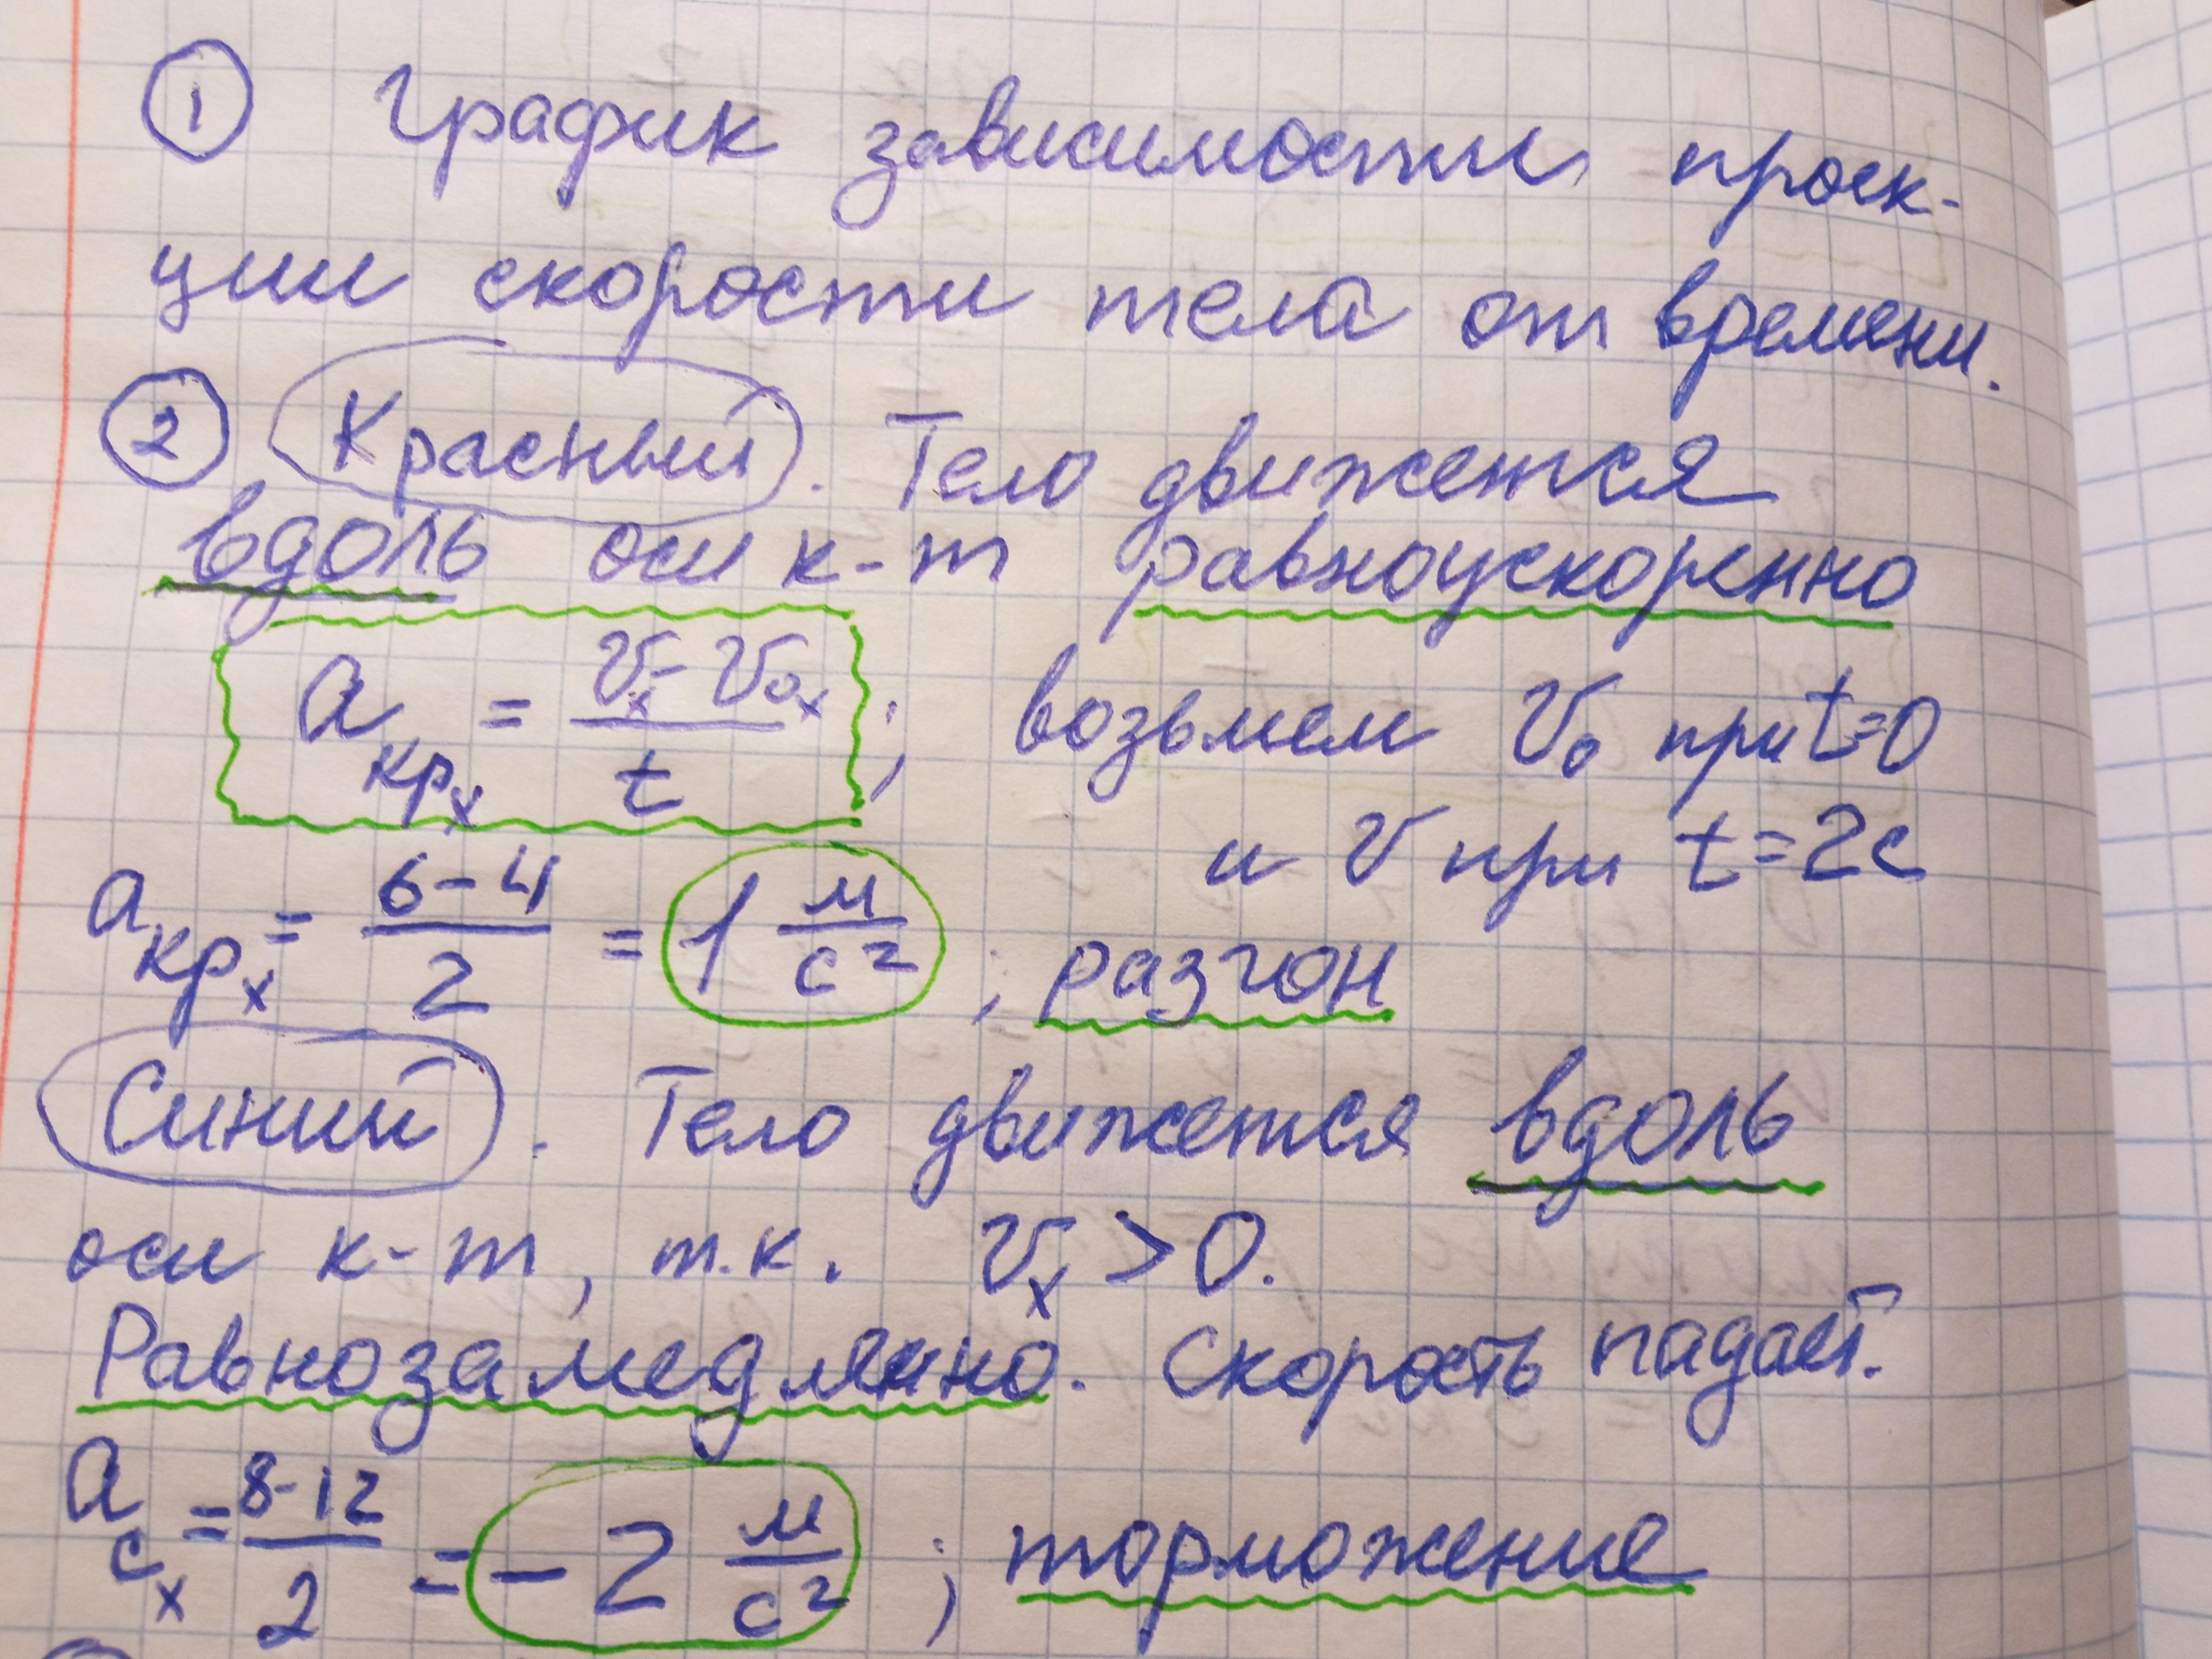 1 График зависимости проек-
ции скорости тела от времени.
2 Красный. Тело движется
вдоль оси к-т равноускоренно
a кр x = (v x - v 0x) / t ; возьмем v₀ при t=0
и v при t=2с
a кр x = (6-4) / 2 = 1 м/с² ; разгон
Синий. Тело движется вдоль
оси к-т, т.к. v x > 0.
Равнозамедленно. Скорость падает.
a с x = (8-12) / 2 = -2 м/с² ; торможение